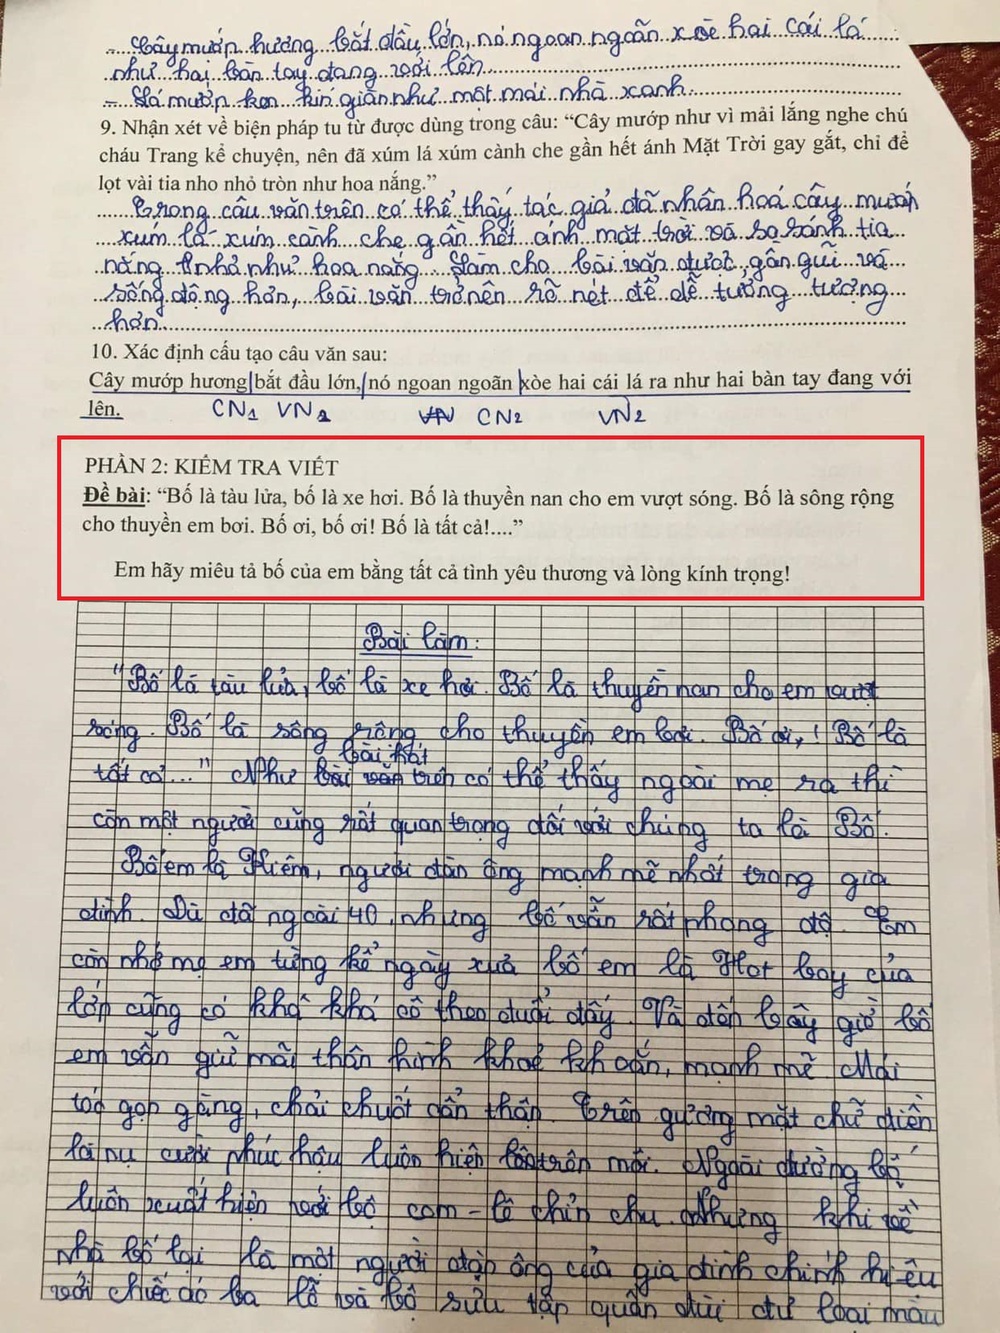 Cây mướp hương bắt đầu lớn, nó ngoan ngoãn xòe hai cái lá
như hai bàn tay đang với lên
- Lá mướp kín gần như một mái nhà xanh.
9. Nhận xét về biện pháp tu từ được dùng trong câu: “Cây mướp như vì mải lắng nghe chú
cháu Trang kể chuyện, nên đã xúm lá xúm cành che gần hết ánh Mặt Trời gay gắt, chỉ để
lọt vài tia nho nhỏ tròn như hoa nắng.”
Trong câu văn trên có thể thấy, tác giả đã nhân hoá cây mướp
xúm lá xúm cành che gần hết ánh mặt trời và so sánh tia
nắng nhỏ như hoa nắng làm cho bài văn được gần gũi và
sống động hơn, bài văn trở nên rõ nét để dễ tưởng tượng
hơn
10. Xác định cấu tạo câu văn sau:
Cây mướp hương bắt đầu lớn, nó ngoan ngoãn xòe hai cái lá ra như hai bàn tay đang với
lên.
CN1 VN1 VN CN2 VN2
PHẦN 2: KIỂM TRA VIẾT
Đề bài: “Bố là tàu lửa, bố là xe hơi. Bố là thuyền nan cho em vượt sóng. Bố là sông rộng
cho thuyền em bơi. Bố ơi, bố ơi! Bố là tất cả!....”
Em hãy miêu tả bố của em bằng tất cả tình yêu thương và lòng kính trọng!
Bài làm:
"Bố là tàu lửa, bố là xe hơi. Bố là thuyền nan cho em vượt
sóng. Bố là sông rộng cho thuyền em bơi. Bố ơi, ! Bố là
bài hát
tất cả..." Như bài văn trên có thể thấy ngoài mẹ ra thì
còn một người cũng rất quan trọng đối với chúng ta là Bố.
Bố em là Hiêm, người đàn ông mạnh mẽ nhất trong gia
đình. Dù đã ngoài 40, nhưng bố vẫn rất phong độ. Em
còn nhớ mẹ em từng kể ngày xưa bố em là Hot boy của
lớp cũng có khá khá cô theo đuổi đấy. Và đến bây giờ bố
em vẫn giữ mãi thân hình khoẻ khoắn, mạnh mẽ. Mái
tóc gọn gàng, chải chuốt cẩn thận. Trên gương mặt chữ điền
là nụ cười phúc hậu luôn hiện trên môi. Ngoài đường bố
luôn xuất hiện với bộ com-lê chỉn chu. Nhưng khi về
nhà bố lại là một người đàn ông của gia đình chính hiệu
với chiếc áo ba lỗ và bộ sưu tập quần đùi đủ loại màu